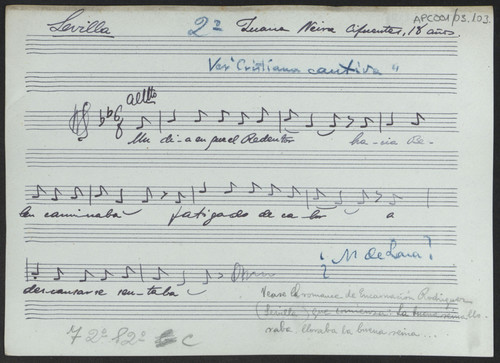 APCO01/03.103
Sevilla 2ª Juana Neira Cifuentes, 18 años.
Ver "Cristiana cautiva"
allttº
Un di-a en que el Redentor ha-cia Be-
len caminaba fatigado de ca-lor a
descansarse sentaba
¿M de Lara?
Vease el romance de Encarnación Rodriguez
(Sevilla) que comienza: La buena reina llo-
raba, lloraba la buena reina ...
72ª 82ª C